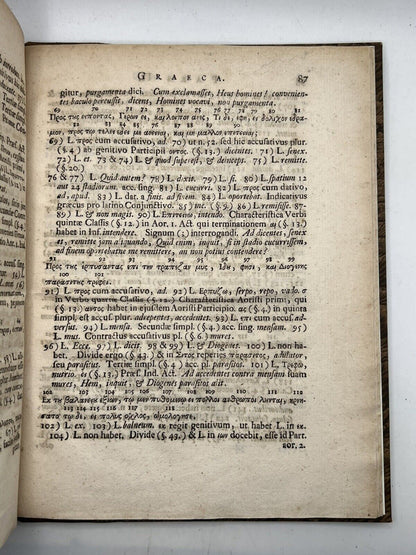 GRAECA. 87
gitur, purgamenta dici. Cum exclamasset, Heus homines! convenien-
tes baculo percussit, dicens, Homines vocavi, non purgamenta.
69 70 71 72 73 74 75 76 77 78 79 80
Προς τες ειποντας, Γερων ει, και λοιπον ανες, Τι δε, ει δολιχον εδρα-
81 82 83 84 85 86 87 88 89 90
μον, προς τω τελει εδει με ανειναι, και μη μαλλον επιτειναι;
69) L. προς cum accusativo, ad. 70) ut n. 12. sed hic accusativus plur.
(§. 4.) ab genitivo Participii οντος. (§. 13.) dicentes. 71) L. senex.
72) L. es. 73 & 74) L. & quod superest, & deinceps. 75) L. remitte.
(§. 20.)
76 & 77) L. Quid autem? 78) L. dixit. 79) L. si. 80) L. spatium 12
aut 24 stadiorum. acc. sing. 81) L. cucurri. 82) L. προς cum dativo,
ad, apud. 83) L. dat. a finis. ad finem. 84) L. oportebat. Indicativus
græcus pro latino Conjunctivo. 85) L. me. (§. 9.) 86) L. remisisse. 87)
89) L. & non magis. 90) L. Επιτεινω, intendo. Characteristica Verbi
quintæ Classis (§. 12.) in Aor. 1. Act. qui terminationem α (§. 13.)
habet in Inf. intendere. Signum (;) interrogandi. Ad dicentes, senex
es, remitte jam a quando, Quid enim, inquit, si in stadio cucurrissem,
ad finem oportebatne me remittere, an non potius contendere?
91 92 93 94 95 96 97 98 99
Προς τες ερπυσαντας υπι την τραπεζαν μυς, Ιδε, φησι, και Διογενης
100 101
παρασιτες τρεφει.
91) L. προς cum accusativo, ad. 92) L. Ερπυζω, serpo, repo, vado. σ
in Verbo quartæ Classis (§. 12.) Characteristica Aoristi primi, qui
(§. 13.) οντος habet in ejusdem Aoristi Participio. ας (§. 4.) in quinta
simpl. est acc. plur. adrepentes, accedentes. 93) L. επι cum accus. ad-
versus. 94) L. mensa. Secundæ simpl. (§. 4.) acc. sing. mensam. 95)
L. mus. Contractus accusativus pl. mures.
96) L. Ecce. 97) L. dicit. 98 & 99) L. & Diogenes. 100) L. non ha-
bet. Divide ergo (§. 43.) & in Σιτος repeties παρασιτος, adsultor,
seu parasitus. Tertiæ simpl. (§. 4.) acc. pl. parasitos. 101) L. Τρεφω,
nutrio, ει (§. 13.) Præs. Ind. Act. Ad accedentes contra mensam suam
mures, Hem, inquit, & Diogenes parasitos alit.
102 103 104 105 106 107 108 109 110 111 112
Εκ τη βαλανειε εξιων, τω μεν πυθομενω ει πολλοι ανθρωποι λυνται, ηρνη-
113 114 115 116 117 118
σατο τω δε, ει πολυς οχλος, ωμολογησε.
102) L. ex. 103) L. balneum. εκ regit genitivum, ut habet L. in εκ.
104) L. non habet. Divide (§. 43.) & L. in ιων docebit, esse id Part.
aor. 2.